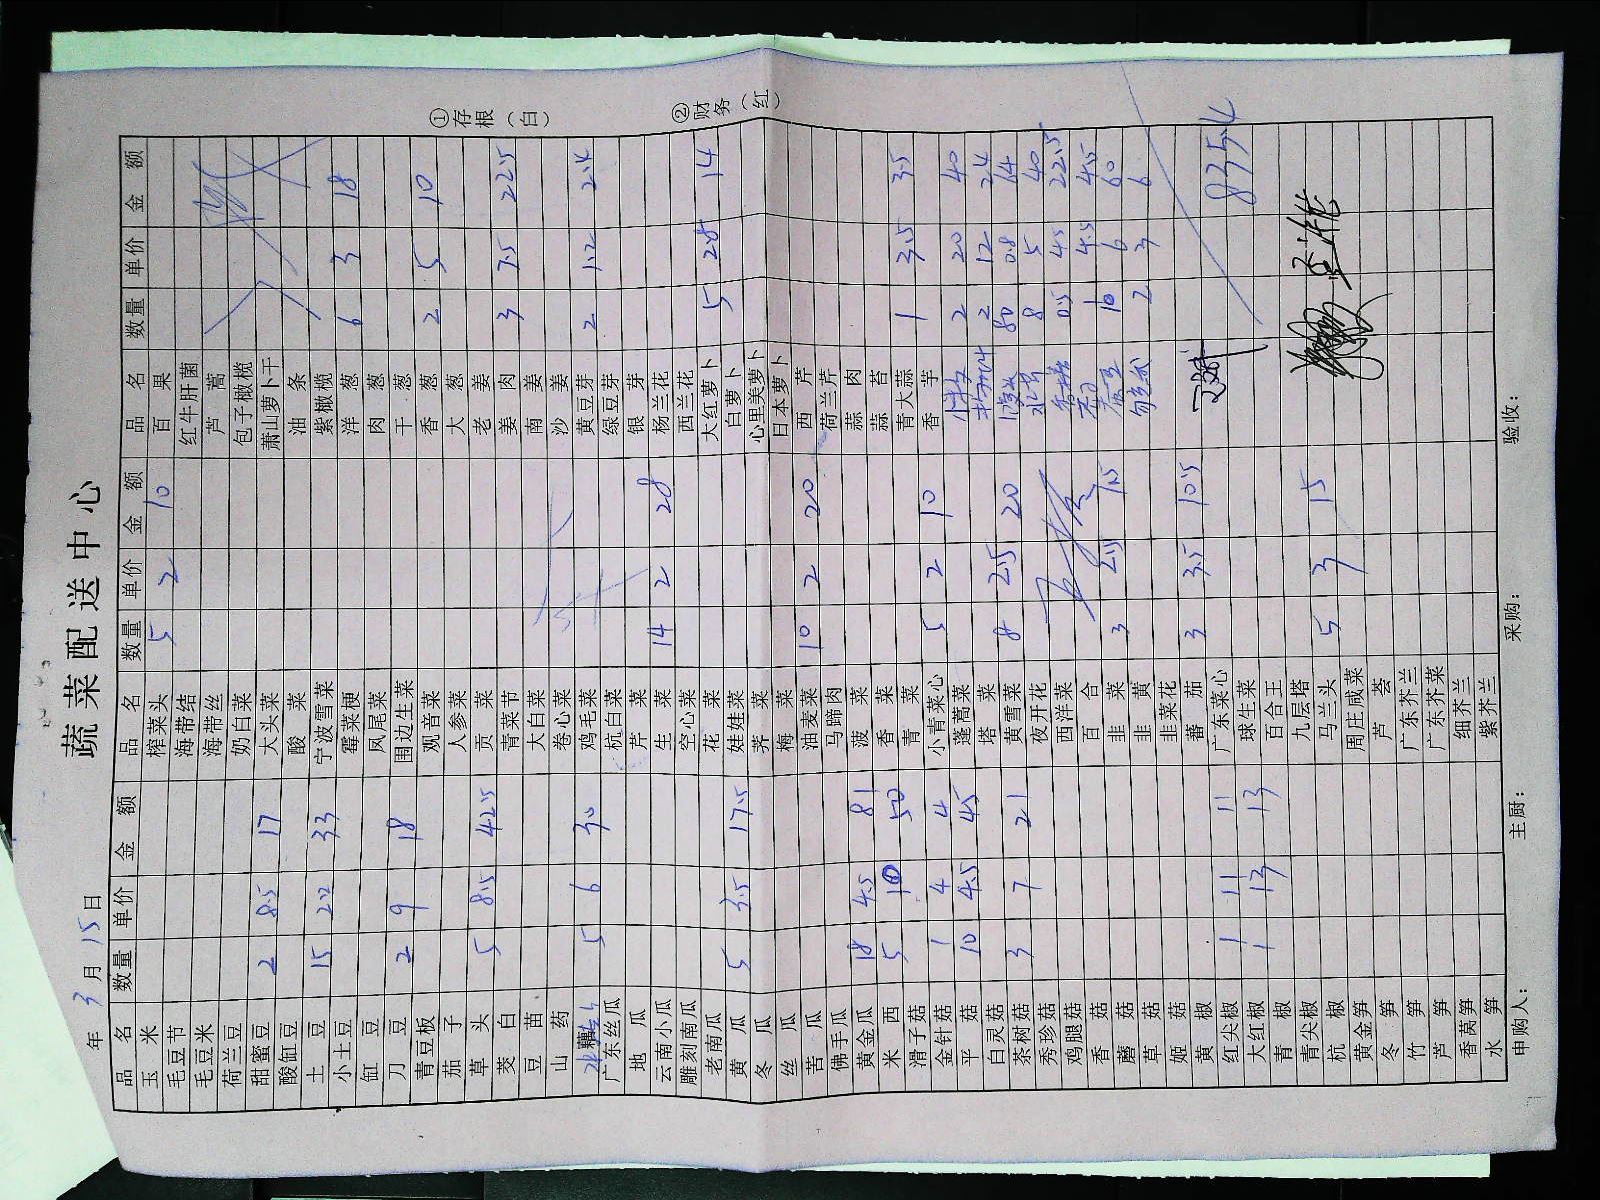 蔬菜配送中心
年 3 月 15 日
①存根（白）
②财务（红）
品名 数量 单价 金额 品名 数量 单价 金额 品名 数量 单价 金额
玉米 榨菜头 5 2 10 百果
毛豆节 海带结 红牛肝菌
毛豆米 海带丝 芦蒿
荷兰豆 奶白菜 包子橄榄
甜蜜豆 2 8.5 17 大头菜 萧山萝卜干
酸缸豆 酸菜 油条
土豆 15 2.2 33 宁波雪菜 紫橄榄
小土豆 霉菜梗 洋葱 6 3 18
缸豆 凤尾菜 肉葱
刀豆 2 9 18 围边生菜 干葱
青豆板 观音菜 香葱 2 5 10
茄子 人参菜 大葱
草头 5 8.5 42.5 贡菜 老姜
茭白 青菜节 姜肉 3 7.5 22.5
豆苗 大白菜 南姜
山药 卷心菜 沙姜
藕 5 6 30 鸡毛菜 黄豆芽 2 1.2 2.4
广东丝瓜 杭白菜 绿豆芽
地瓜 芹菜 银芽
云南小瓜 生菜 14 2 28 杨兰花
雕刻南瓜 空心菜 西兰花
老南瓜 花菜 大红萝卜 5 2.8 14
黄瓜 5 3.5 17.5 娃娃菜 白萝卜
冬瓜 荠菜 心里美萝卜
丝瓜 梅菜 日本萝卜
苦瓜 油麦菜 10 2 20 西芹
佛手瓜 马蹄肉 荷兰芹
黄金瓜 18 4.5 81 菠菜 蒜肉
米西 5 10 50 香菜 蒜苔
滑子菇 青菜 青大蒜 1 3.5 3.5
金针菇 1 4 4 小青菜心 5 2 10 香芋
平菇 10 4.5 45 蓬蒿菜 2 20 40
白灵菇 塔菜 2 12 24
茶树菇 3 7 21 黄雪菜 8 2.5 20 80 0.8 64
秀珍菇 夜开花 8 5 40
鸡腿菇 西洋菜 05 45 22.5
香菇 百合 4.5 45
蘑菇 韭菜 3 2.5 7.5 10 6 60
草菇 韭黄 2 3 6
姬菇 韭菜花
黄椒 蕃茄 3 3.5 10.5
红尖椒 1 11 11 广东菜心
大红椒 1 13 13 球生菜 835.4
青椒 百合王
青尖椒 九层塔
杭椒 马兰头 5 3 15
黄金笋 周庄咸菜
冬笋 芦荟
竹笋 广东芥兰
芦笋 广东芥菜
香莴笋 细芥兰
水笋 紫芥兰
申购人： 主厨： 采购： 验收：